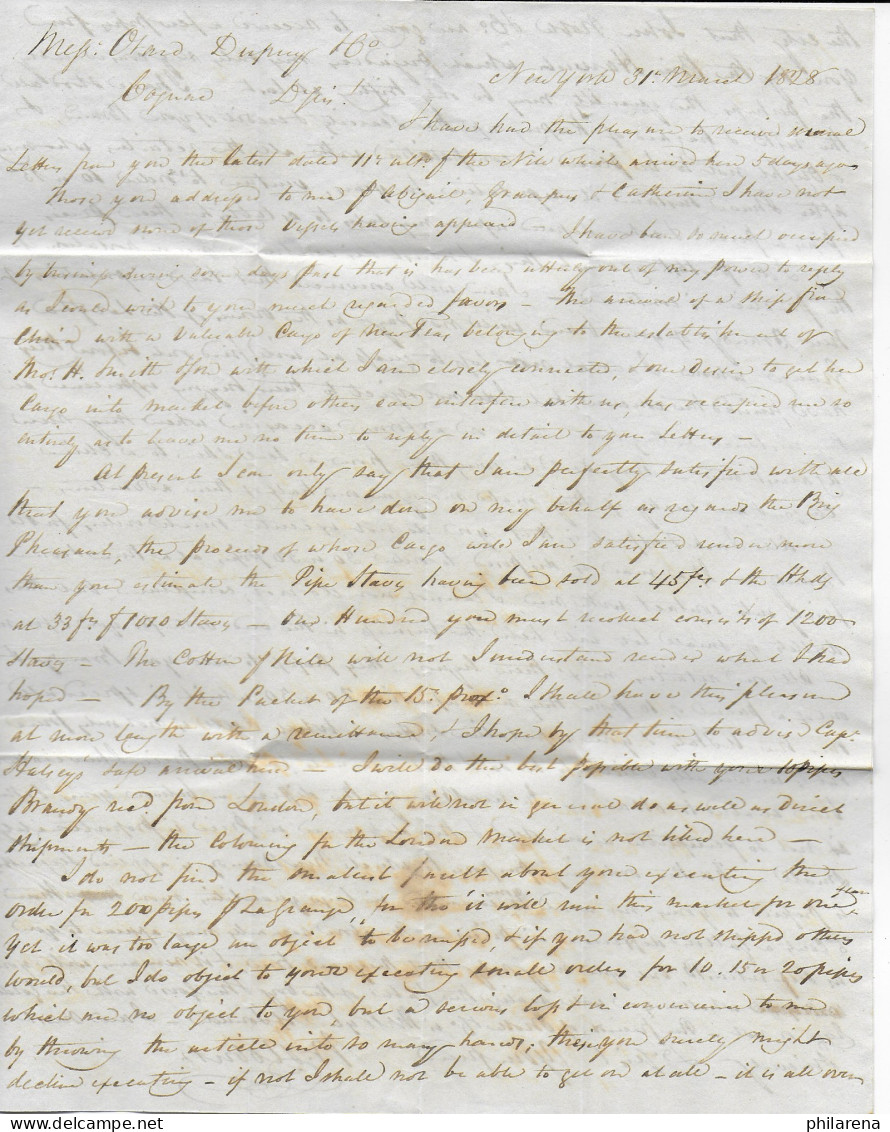 Messrs: Otard Dupuy & Co.
New York 31st March 1828
Cognac Dr Sirs!
I have had the pleasure to receive several
Letters from you the latest dated 11th ulto p the Nile which arrived here 5 days ago
Those you addressed to me p Abigail, Grampus & Catherine I have not
yet received none of those Vessels having appeared – I have been so much occupied
by business during some days past that is has been utterly out of my power to reply
as I could wish to your much regarded favors – The arrival of a Ship from
China with a Valuable Cargo of New Teas belonging to the establishment of
Thos. H. Smith & Son with which I am closely connected, & our desire to get her
Cargo into market before others can interfere with us, has occupied me so
entirely as to leave me no time to reply in detail to your Letters –
At present I can only say that I am perfectly satisfied with all
that you advise me to have done on my behalf as regards the Brig
Pheasant, the proceeds of whose Cargo will I am satisfied render more
than you estimate the Pipe Staves having been sold at 45 fcs & the Hhds
at 33 fcs p 1010 Staves – One Hundred you must recollect consists of 1200
Staves – The Cotton p Nile will not I understand render what I had
hoped – By the Packet of the 15th proxo. I shall have this pleasure
at more length with a remittance & I hope by that time to advise Capt
Halsey's safe arrival here – I will do the best possible with your 10 pipes
Brandy recd. from London, but it will not in general do as well as Direct
Shipments – the Coloring for the London Market is not liked here –
I do not find the smallest fault about your executing the
order for 200 pipes p La Grange, for tho' it will ruin this market for one year
yet it was too large an object to be missed, & if you had not shipped others
would, but I do object to your executing small orders for 10. 15 or 20 pipes
which are no object to you, but a serious loss & inconvenience to me
by throwing the article into so many hands; these you surely might
decline executing – if not I shall not be able to get on at all – it is all over
philarena